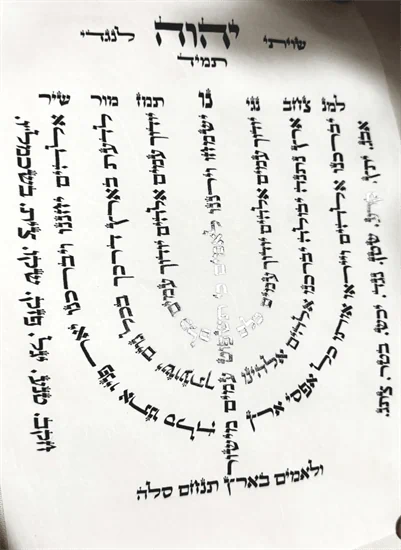 שויתי יהוה לנגדי
תמיד
למנ צחב נגי נו תמז מור שיר
אבג. יתץ. קרע. שטן. נגד. יכש. בטר. צתג.
אלהים יחננו ויברכנו יאר פניו אתנו סלה
לדעת בארץ דרכך בכל גוים ישועתך
יודוך עמים אלהים יודוך עמים כלם
ישמחו וירננו לאמים כי תשפוט עמים מישור
ולאמים בארץ תנחם סלה
יודוך עמים אלהים יודוך עמים כלם
ארץ נתנה יבולה יברכנו אלהים אלהינו
יברכנו אלהים וייראו אותו כל אפסי ארץ
חקב. טנע. יגל. פזק. שקו. צית.